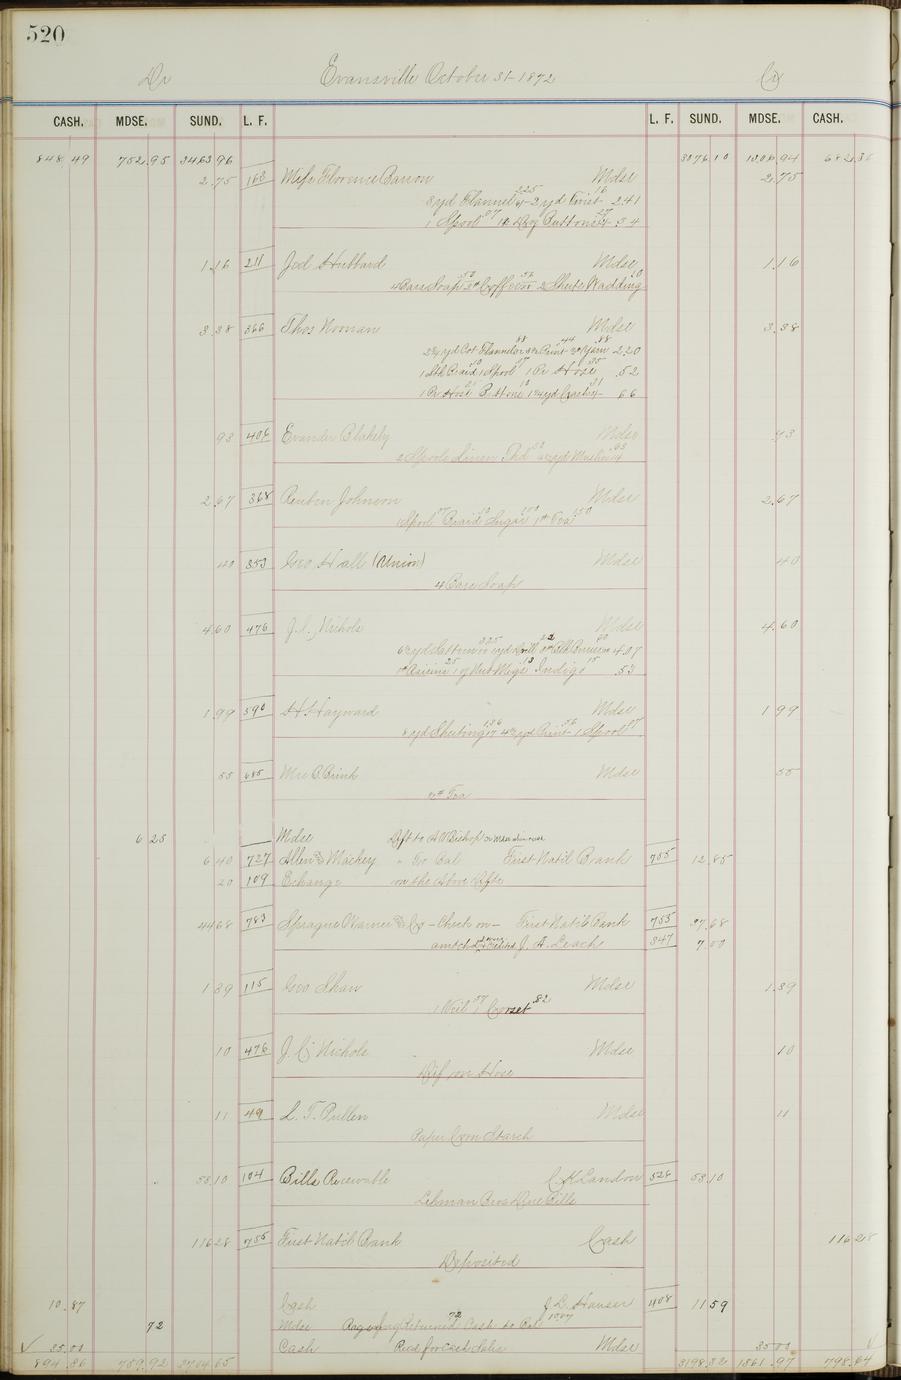 520
Dr Evansville October 31-1872 Cr
CASH. MDSE. SUND. L. F. L. F. SUND. MDSE. CASH.
848.49 752.95 3463.96 3076.10 1306.94 682.36
2.75 163 Miss Florence Barron Mdse 2.75
8 yd Flannel 2.25 2 yd Twist 16 2.41
1 Spool 07 Doz Buttons 27 34
1.16 211 Jed Hubbard Mdse 1.16
4 Bars Soap 50 Coffee 56 2 Sheets Wadding 10
3.38 366 Thos Noonan Mdse 3.38
yd Cot Flannel 88 Print 44 Yarn 88 2.20
1 Braid 10 1 Spool 07 1 Pr Hose 35 .52
1 Pr Hose 25 10 yd 31 66
93 406 Evander Blakely Mdse 93
2 Spools Linen Thd yd Muslin
2.67 368 Reuben Johnson Mdse 2.67
1 Spool 07 Braid 10 Sugar 1.00 1# Tea 1.50
40 353 Geo Hall (Union) Mdse 40
4 Bars Soap
4.60 476 J. C. Nichols Mdse 4.60
yd 3.25 yd Drill 22 60 4.07
25 Nut Megs 13 Indigo 15 53
1.99 590 H Hayward Mdse 1.99
8 yd Sheeting 1.36 yd Print 56 1 Spool 7
55 685 Mrs B Brink Mdse 55
Tea
6 25 Mdse Dft to A W Bishop
6 40 727 Allen & Mackey " To Bal First Nat'l Bank 755 12.85
20 109 Exchange on the above Dfts
44 68 783 Sprague Warner & Co - Check on - First Nat'l Bank 755 37.68
J. A. Leach 347 7.00
1.39 115 Geo Shaw Mdse 1.39
1 Veil 57 1 Corset 82
10 476 J. C. Nichols Mdse 10
Dif on Hose
11 49 L. T. Pullen Mdse 11
Paper Corn Starch
58 10 104 Bills Receivable C. K. Landon 526 58.10
Lehman Bros Due Bills
116 28 755 First Nat'l Bank Cash 116 28
Deposited
10.87 Cash J L Hauser 408 11 59
72 Mdse Returned 72 Cash to Bal 10.87
35.00 Cash Recd for Cash Sales Mdse 35 00
894.36 759.92 3704.65 3198.32 1361.97 798.64